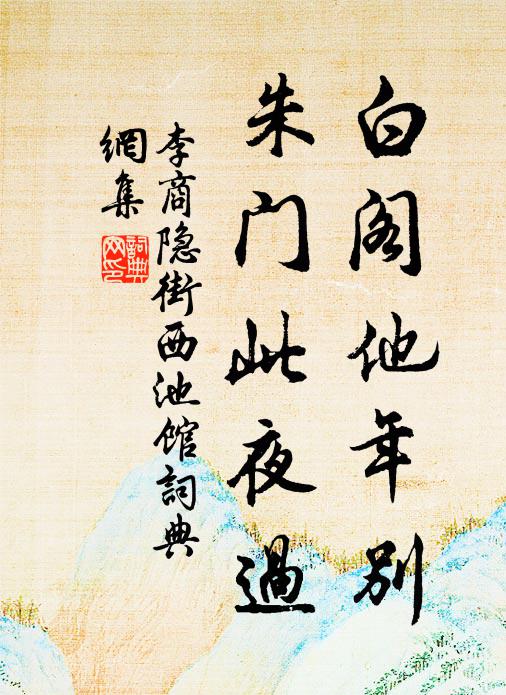 白阁他年别
朱门此夜過
李商隐街西池馆詞典
網集
詞典
网印